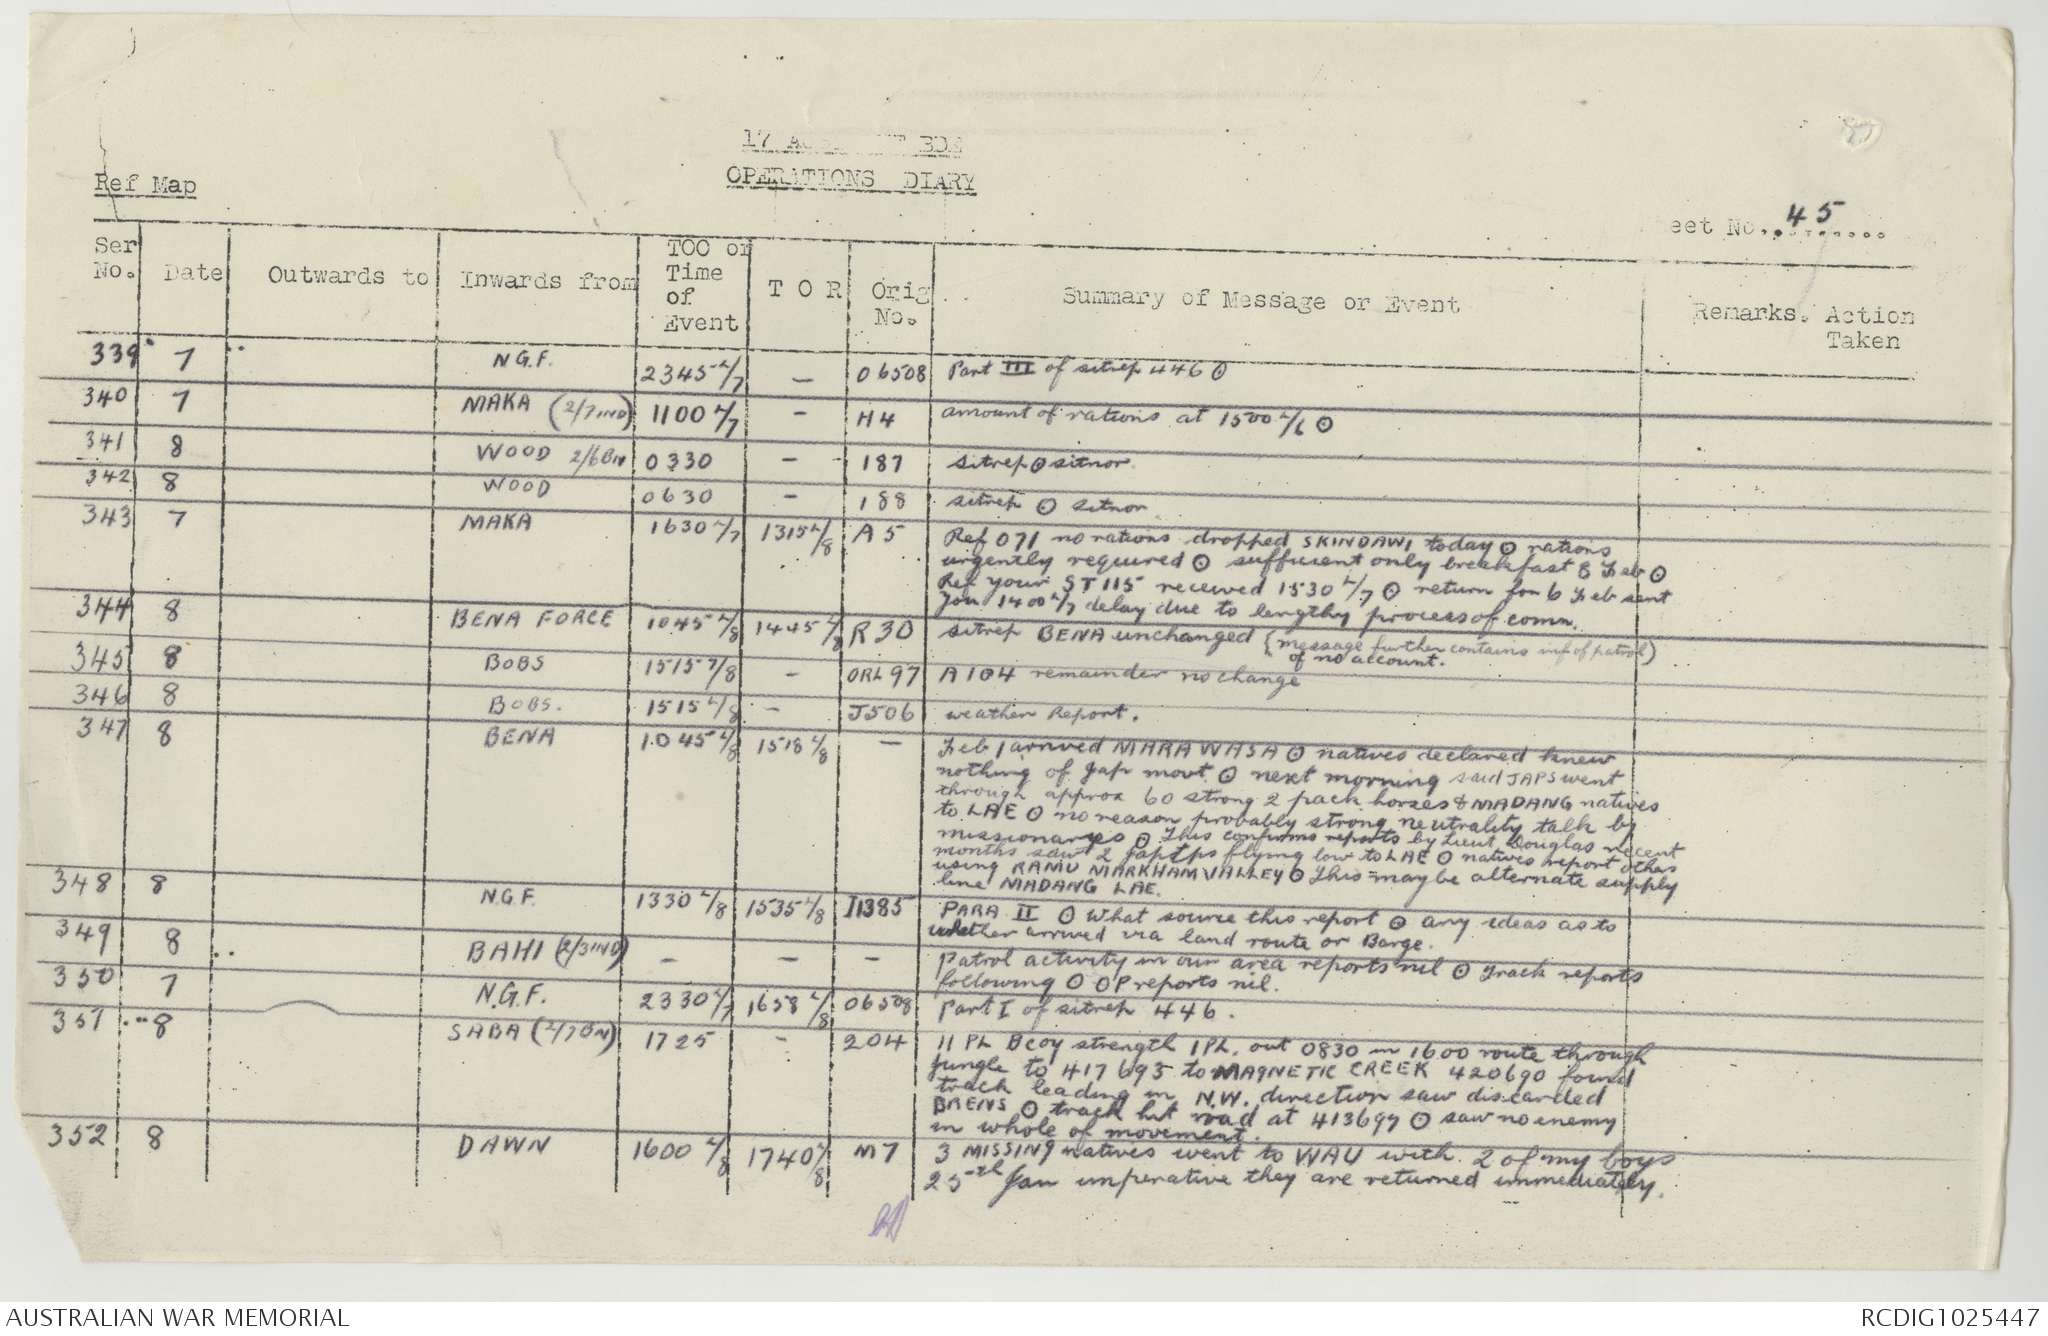 OPERATIONS DIARY
Ref Map
eet No. 45
Ser No. Date Outwards to Inwards from TOO or Time of Event T O R Orig No. Summary of Message or Event Remarks. Action Taken
339 7 N.G.F. 2345 L/7 — 06508 Part III of sitrep 446 ⊙
340 7 MAKA (2/7 IND) 1100 L/7 — H4 amount of rations at 1500 L/6 ⊙
341 8 WOOD 2/6 BN 0330 — 187 sitrep ⊙ sitnor
342 8 WOOD 0630 — 188 sitrep ⊙ sitnor
343 7 MAKA 1630 L/7 1315 L/8 A 5 Ref 071 no rations dropped SKINDAWI today ⊙ rations
urgently required ⊙ sufficient only breakfast 8 Feb ⊙
Ref your ST 115 received 1530 L/7 ⊙ return for 6 Feb sent
you 1400 L/7 delay due to lengthy process of comn.
344 8 BENA FORCE 1045 L/8 1445 L/8 R 30 sitrep BENA unchanged (message further contains inf of patrol)
of no account.
345 8 BOBS 1515 L/8 — ORL 97 A 104 remainder no change
346 8 BOBS. 1515 L/8 — J506 weather Report.
347 8 BENA 1045 L/8 1518 L/8 — Feb 1 arrived MARAWASA ⊙ natives declared knew
nothing of Jap movt ⊙ next morning said JAPS went
through approx 60 strong 2 pack horses & MADANG natives
to LAE ⊙ no reason probably strong neutrality talk by
missionarys ⊙ This confirms reports by Lieut Douglas recent
months saw 2 Jap tps flying low to LAE ⊙ natives report others
using RAMU MARKHAM VALLEY ⊙ This = may be alternate supply
line MADANG LAE.
348 8 N.G.F. 1330 L/8 1535 L/8 I1385 PARA II ⊙ What source this report ⊙ any ideas as to
whether arrived via land route or Barge.
349 8 BAHI (2/3 IND) — — — Patrol activity in our area reports nil ⊙ Track reports
following ⊙ OP reports nil.
350 7 N.G.F. 2330 L/7 1658 L/8 06508 Part I of sitrep 446.
351 8 SABA (2/7 BN) 1725 — 204 11 PL B coy strength 1 PL. out 0830 in 1600 route through
jungle to 417693 to MAGNETIC CREEK 420690 found
track leading in N.W. direction saw discarded
BRENS ⊙ track hit road at 413697 ⊙ saw no enemy
in whole of movement.
352 8 DAWN 1600 L/8 1740 L/8 M7 3 MISSING natives went to WAU with 2 of my boys
25th Jan imperative they are returned immediately.
AUSTRALIAN WAR MEMORIAL
RCDIG1025447